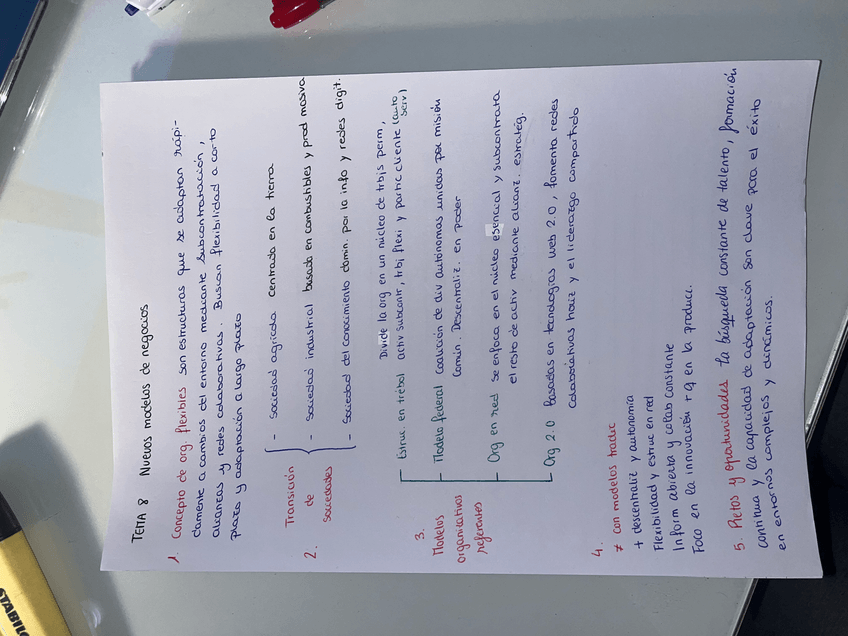 TEMA 8 Nuevos modelos de negocios
1. Concepto de org. flexibles son estructuras que se adaptan rápi-
damente a cambios del entorno mediante subcontratación,
alianzas y redes colaborativas. Buscan flexibilidad a corto
plazo y adaptación a largo plazo
2. Transición
de
sociedades
- Sociedad agrícola centrada en la tierra
- Sociedad industrial basada en combustibles y prod masiva
- Sociedad del conocimiento domin. por la info y redes digit.
3.
Modelos
organizativos
referentes
Estruc. en trébol
Divide la org en un núcleo de trbjs perm,
activ subcontr, trbj flexi y partic cliente (auto
serv)
Modelo federal coalición de div autónomas unidas por misión
común. Descentraliz. en poder
Org en red se enfoca en el núcleo esencial y subcontrata
el resto de activ mediante alianz. estratég.
Org 2.0 Basadas en tecnologías web 2.0, fomenta redes
colaborativas horiz y el liderazgo compartido
4.
≠ con modelos tradic
+ descentraliz y autonomía
Flexibilidad y estruc en red
Inform abierta y colab constante
Foco en la innovación + q en la producc.
5. Retos y oportunidades la búsqueda constante de talento, formación
continua y la capacidad de adaptación son clave para el éxito
en entornos complejos y dinámicos.
STABILO